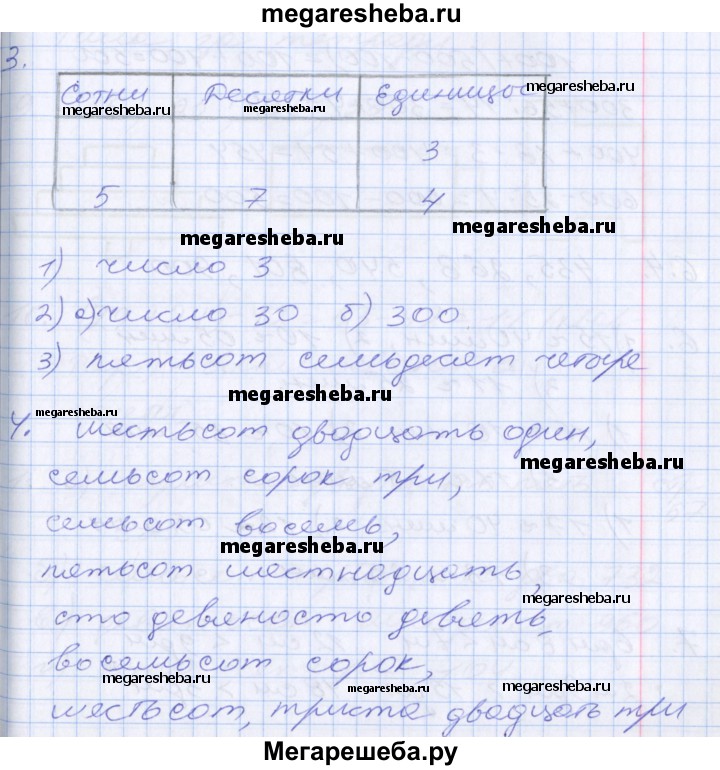 megaresheba.ru
3.
Сотни Десятки Единицы
megaresheba.ru megaresheba.ru megaresheba.ru
3
5 7 4
megaresheba.ru megaresheba.ru
1) число 3
2) а) число 30 б) 300
3) пятьсот семьдесят четыре
megaresheba.ru
megaresheba.ru
4. шестьсот двадцать один,
megaresheba.ru
семьсот сорок три,
семьсот восемь,
megaresheba.ru
пятьсот шестнадцать,
megaresheba.ru
сто девяносто девять,
восемьсот сорок,
megaresheba.ru megaresheba.ru megaresheba.ru
шестьсот, триста двадцать три
Мегарешеба.ру